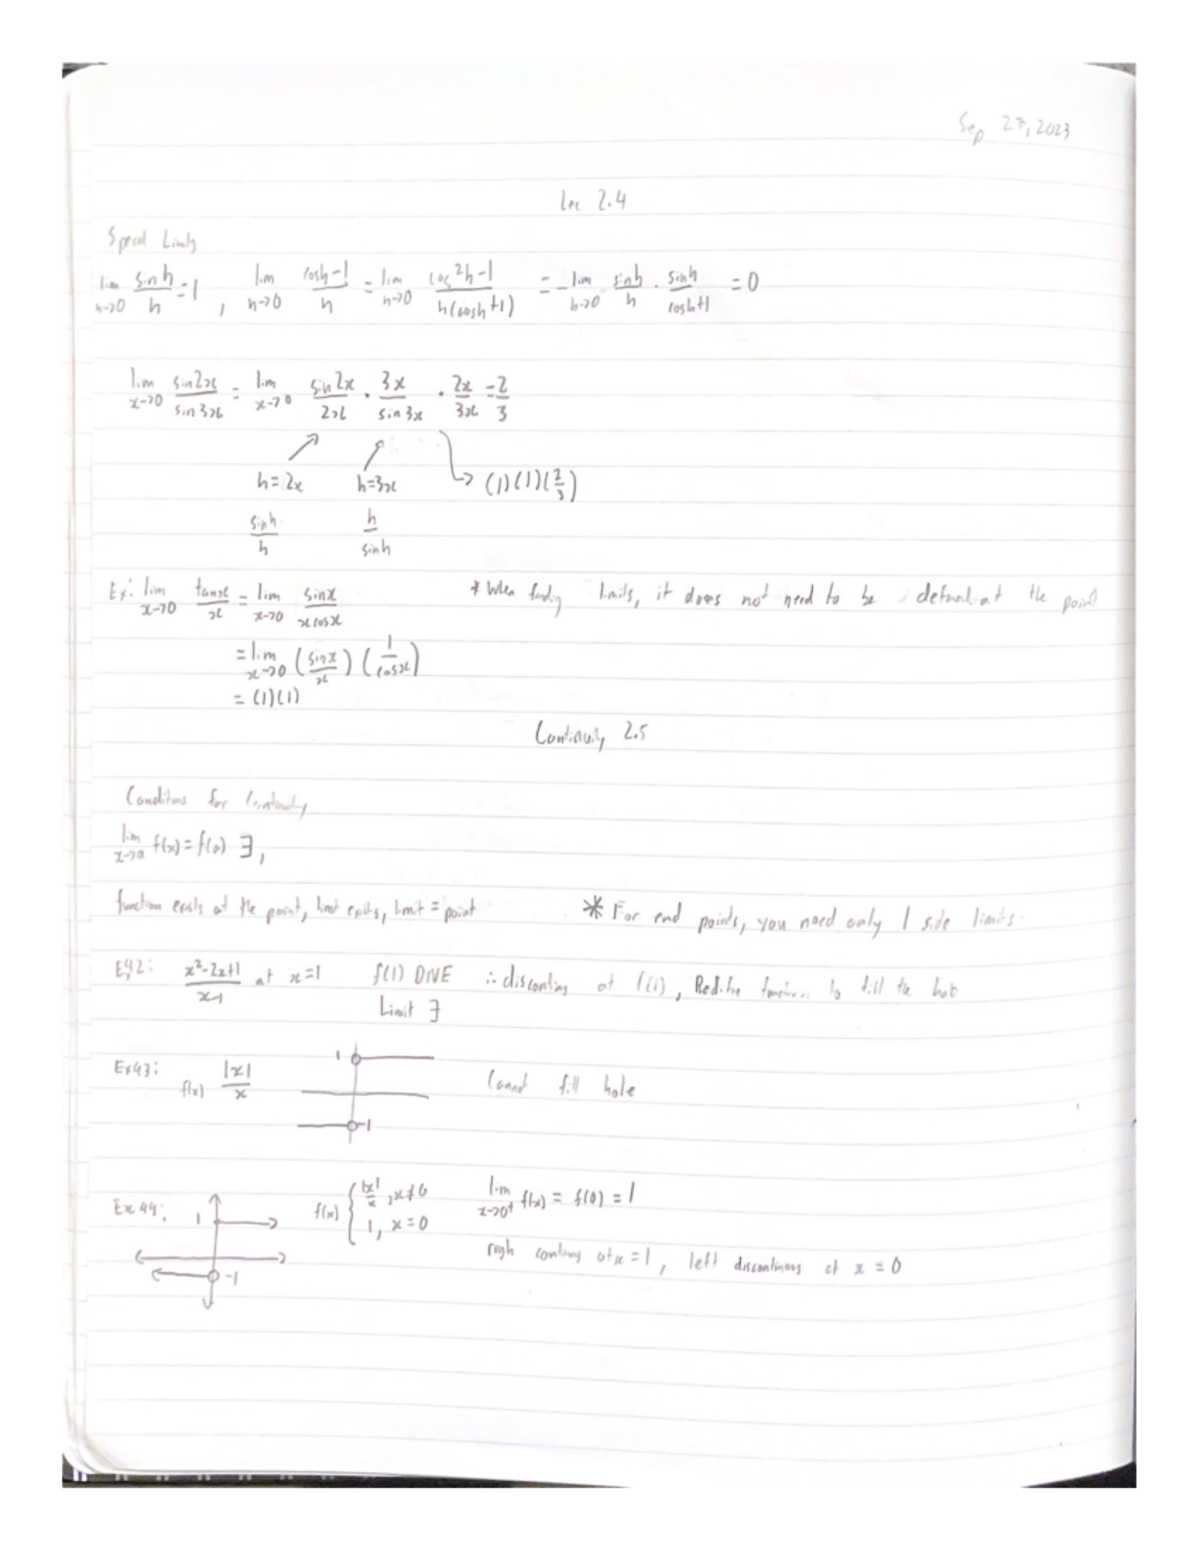 Sep 27, 2023
Lec 2.4
Special Limits
lim h→0 sinh/h = 1 , lim h→0 cosh-1/h = lim h→0 cos²h-1/h(cosh+1) = -lim h→0 sinh/h · sinh/cosh+1 = 0
lim x→0 sin2x/sin3x = lim x→0 sin2x/2x · 3x/sin3x · 2x/3x = 2/3
h=2x h=3x → (1)(1)(2/3)
sinh/h h/sinh
Ex: lim x→0 tanx/x = lim x→0 sinx/xcosx * When finding limits, it does not need to be defined at the point
= lim x→0 (sinx/x)(1/cosx)
= (1)(1)
Continuity 2.5
Conditions for Continuity
lim x→a f(x) = f(a) ∃,
function exists at the point, limit exists, limit = point * For end points, you need only 1 side limits.
Ex42: x²-2x+1/x-1 at x=1 f(1) DNE ∴ discontinuous at f(1), Redefine function to fill the hole
Limit ∃
Ex43: f(x) |x|/x 1 -1 Cannot fill hole
Ex 44: 1 -1 f(x) { |x|/x, x≠0 lim x→0⁺ f(x) = f(0) = 1
1, x=0
right continuous at x=1, left discontinuous at x=0